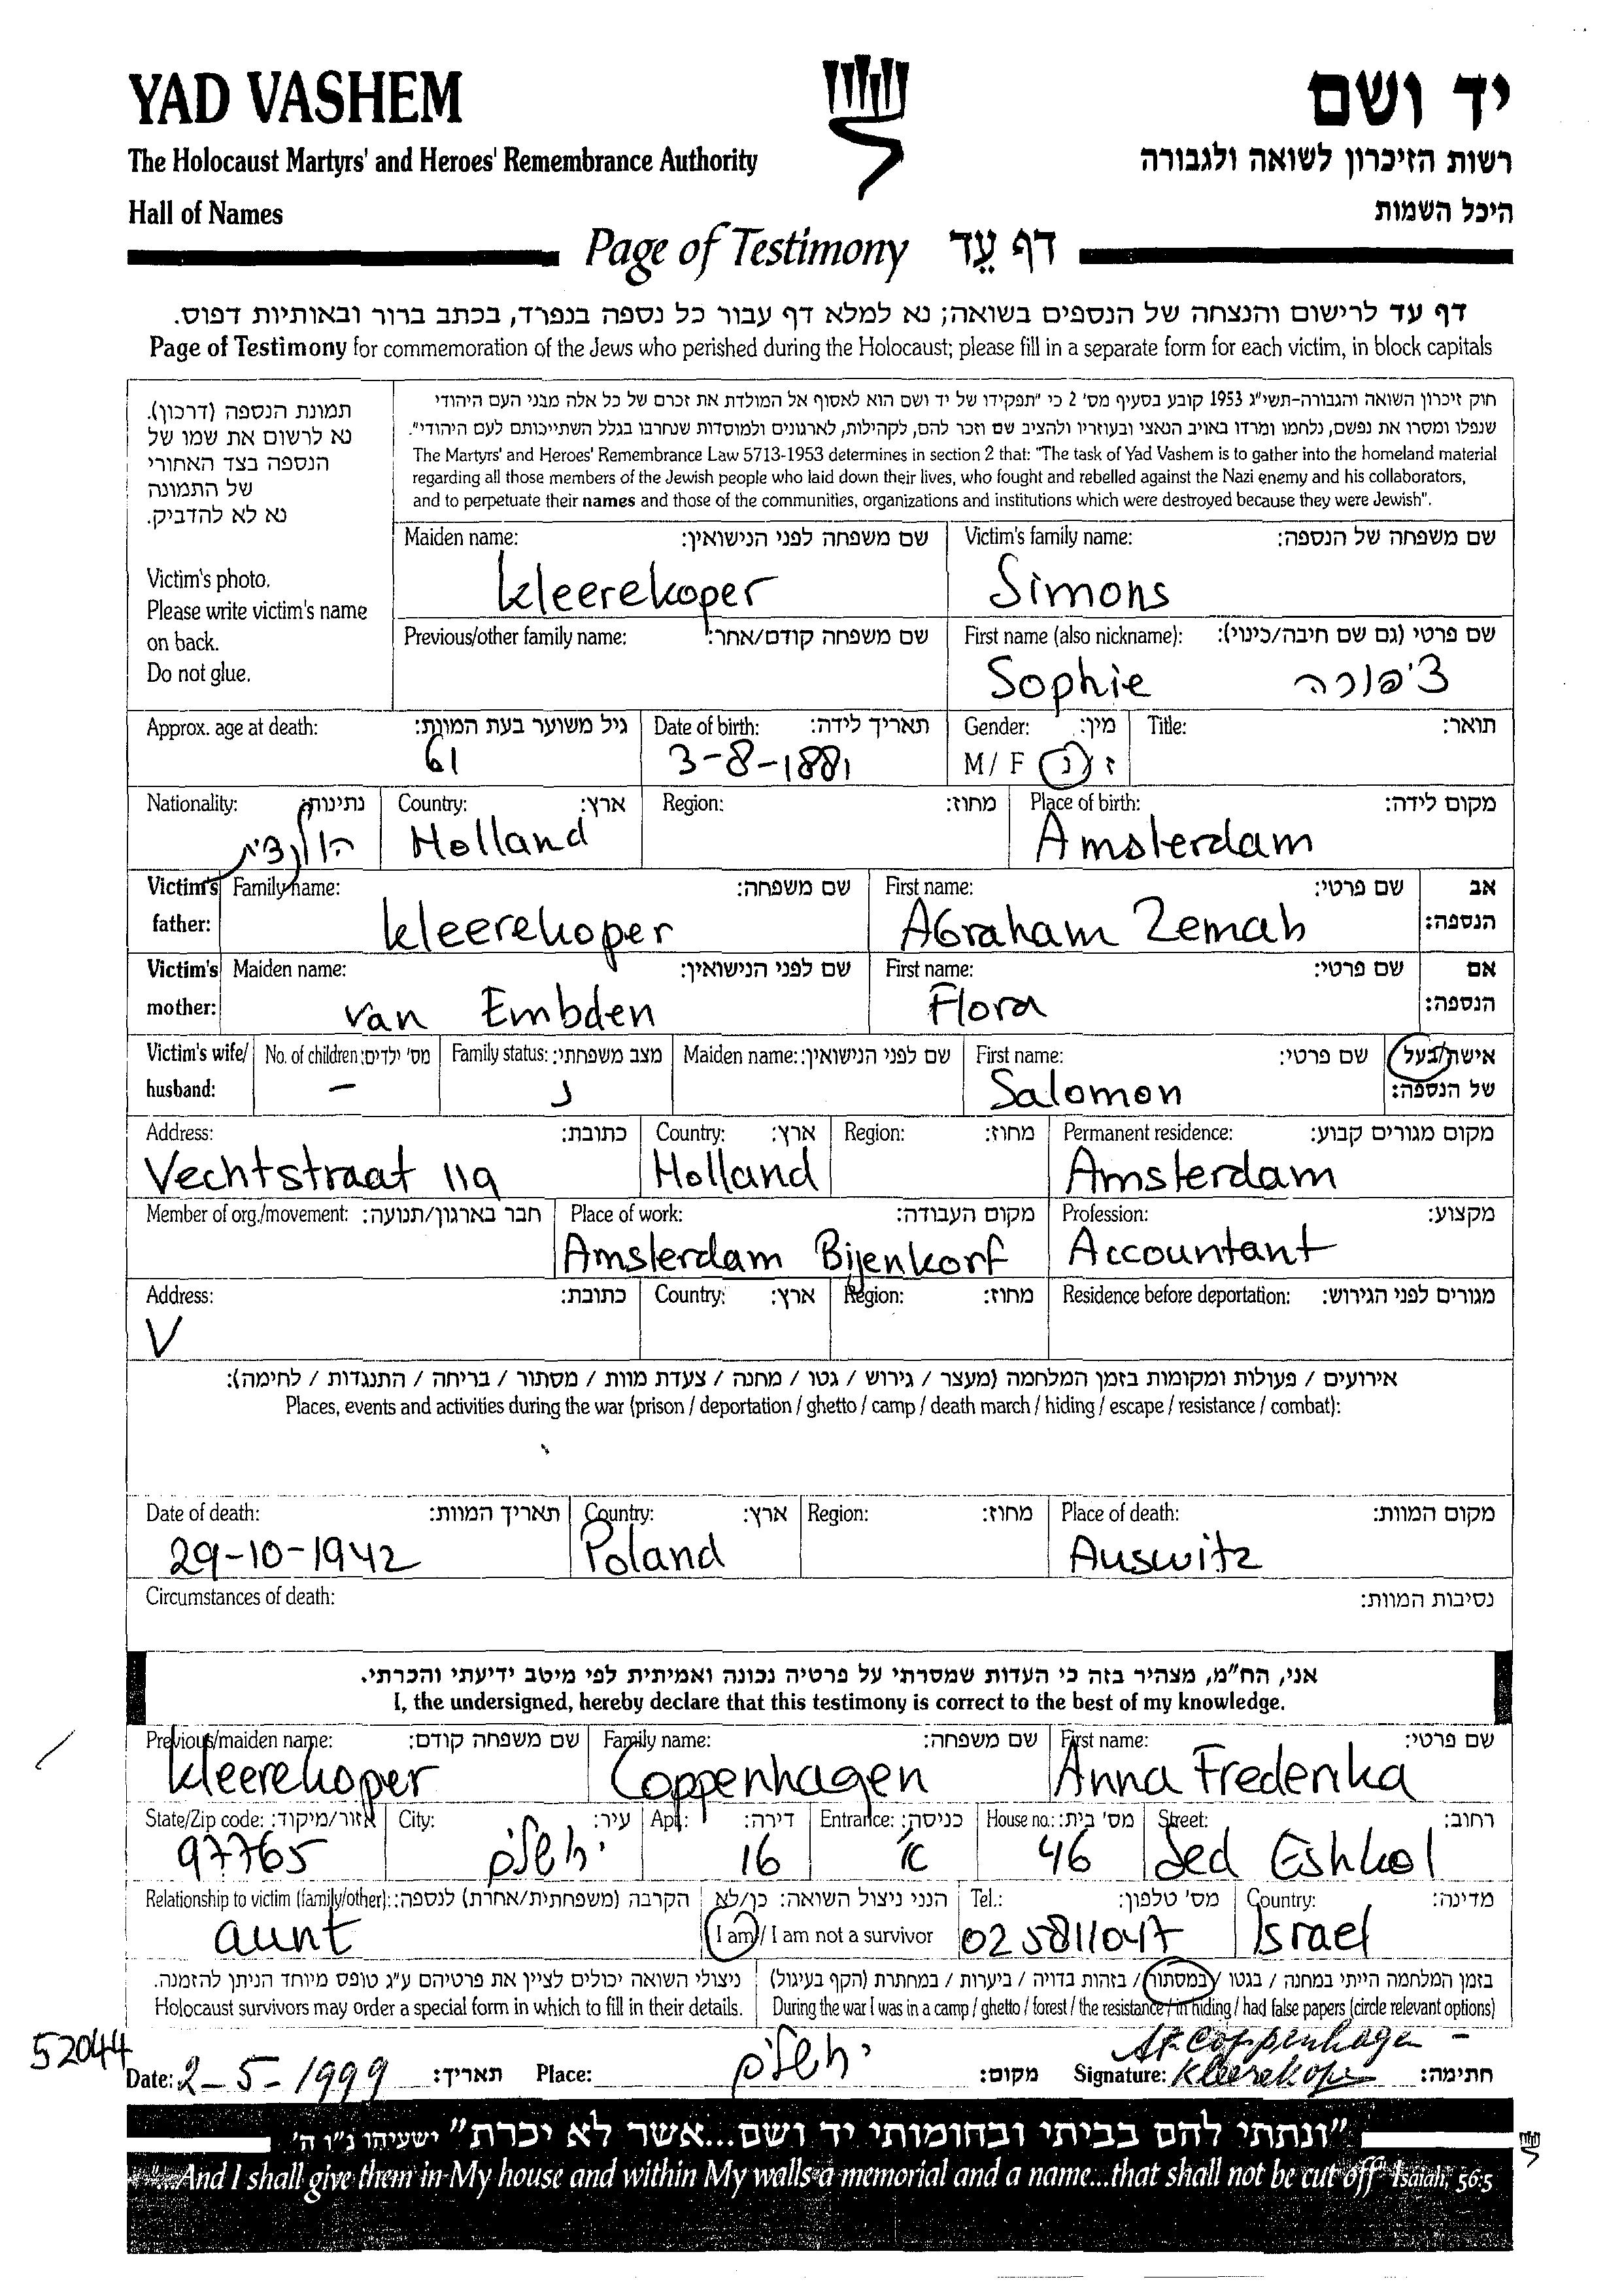 YAD VASHEM
יד ושם
The Holocaust Martyrs' and Heroes' Remembrance Authority
רשות הזיכרון לשואה ולגבורה
Hall of Names
היכל השמות
Page of Testimony דף עֵד
דף עד לרישום והנצחה של הנספים בשואה; נא למלא דף עבור כל נספה בנפרד, בכתב ברור ובאותיות דפוס.
Page of Testimony for commemoration of the Jews who perished during the Holocaust; please fill in a separate form for each victim, in block capitals
תמונת הנספה (דרכון).
נא לרשום את שמו של
הנספה בצד האחורי
של התמונה
נא לא להדביק.
Victim's photo.
Please write victim's name
on back.
Do not glue.
חוק זיכרון השואה והגבורה-תשי"ג 1953 קובע בסעיף מס' 2 כי "תפקידו של יד ושם הוא לאסוף אל המולדת את זכרם של כל אלה מבני העם היהודי
שנפלו ומסרו את נפשם, נלחמו ומרדו באויב הנאצי ובעוזריו ולהציב שם וזכר להם, לקהילות, לארגונים ולמוסדות שנחרבו בגלל השתייכותם לעם היהודי".
The Martyrs' and Heroes' Remembrance Law 5713-1953 determines in section 2 that: "The task of Yad Vashem is to gather into the homeland material
regarding all those members of the Jewish people who laid down their lives, who fought and rebelled against the Nazi enemy and his collaborators,
and to perpetuate their names and those of the communities, organizations and institutions which were destroyed because they were Jewish".
Maiden name: שם משפחה לפני הנישואין: Victim's family name: שם משפחה של הנספה:
kleerekoper Simons
Previous/other family name: שם משפחה קודם/אחר: First name (also nickname): שם פרטי (גם שם חיבה/כינוי):
Sophie ציפורה
Approx. age at death: גיל משוער בעת המוות: Date of birth: תאריך לידה: Gender: מין: Title: תואר:
61 3-8-1881 M/ F ז / נ
Nationality: נתינות: Country: ארץ: Region: מחוז: Place of birth: מקום לידה:
הולנדית Holland Amsterdam
Victim's Family name: שם משפחה: First name: שם פרטי: אב
father: kleerekoper Abraham Zemah הנספה:
Victim's Maiden name: שם לפני הנישואין: First name: שם פרטי: אם
mother: van Embden Flora הנספה:
Victim's wife/ No. of children: מס' ילדים: Family status: מצב משפחתי: Maiden name: שם לפני הנישואין: First name: שם פרטי: אישת/בעל
husband: – נ Salomon של הנספה:
Address: כתובת: Country: ארץ: Region: מחוז: Permanent residence: מקום מגורים קבוע:
Vechtstraat 119 Holland Amsterdam
Member of org./movement: חבר בארגון/תנועה: Place of work: מקום העבודה: Profession: מקצוע:
Amsterdam Bijenkorf Accountant
Address: כתובת: Country: ארץ: Region: מחוז: Residence before deportation: מגורים לפני הגירוש:
V
אירועים / פעולות ומקומות בזמן המלחמה (מעצר / גירוש / גטו / מחנה / צעדת מוות / מסתור / בריחה / התנגדות / לחימה):
Places, events and activities during the war (prison / deportation / ghetto / camp / death march / hiding / escape / resistance / combat):
Date of death: תאריך המוות: Country: ארץ: Region: מחוז: Place of death: מקום המוות:
29-10-1942 Poland Auswitz
Circumstances of death: נסיבות המוות:
אני, הח"מ, מצהיר בזה כי העדות שמסרתי על פרטיה נכונה ואמיתית לפי מיטב ידיעתי והכרתי.
I, the undersigned, hereby declare that this testimony is correct to the best of my knowledge.
Previous/maiden name: שם משפחה קודם: Family name: שם משפחה: First name: שם פרטי:
kleerekoper Coppenhagen Anna Frederika
State/Zip code: אזור/מיקוד: City: עיר: Apt.: דירה: Entrance: כניסה: House no.: מס' בית: Street: רחוב:
97765 ירושלים 16 א 46 Sed Eshkol
Relationship to victim (family/other): הקרבה (משפחתית/אחרת) לנספה: הנני ניצול השואה: כן/לא Tel.: מס' טלפון: Country: מדינה:
aunt I am / I am not a survivor 02 5811047 Israel
ניצולי השואה יכולים לציין את פרטיהם ע"ג טופס מיוחד הניתן להזמנה. בזמן המלחמה הייתי במחנה / בגטו / במסתור / בזהות בדויה / ביערות / במחתרת (הקף בעיגול)
Holocaust survivors may order a special form in which to fill in their details. During the war I was in a camp / ghetto / forest / the resistance / in hiding / had false papers (circle relevant options)
52044
Date: 2-5-1999 תאריך: Place: ירושלים מקום: Signature: Coppenhagen - Kleerekoper חתימה:
"ונתתי להם בביתי ובחומותי יד ושם...אשר לא יכרת" ישעיהו נ"ו ה'
"...And I shall give them in My house and within My walls a memorial and a name...that shall not be cut off" Isaiah, 56:5